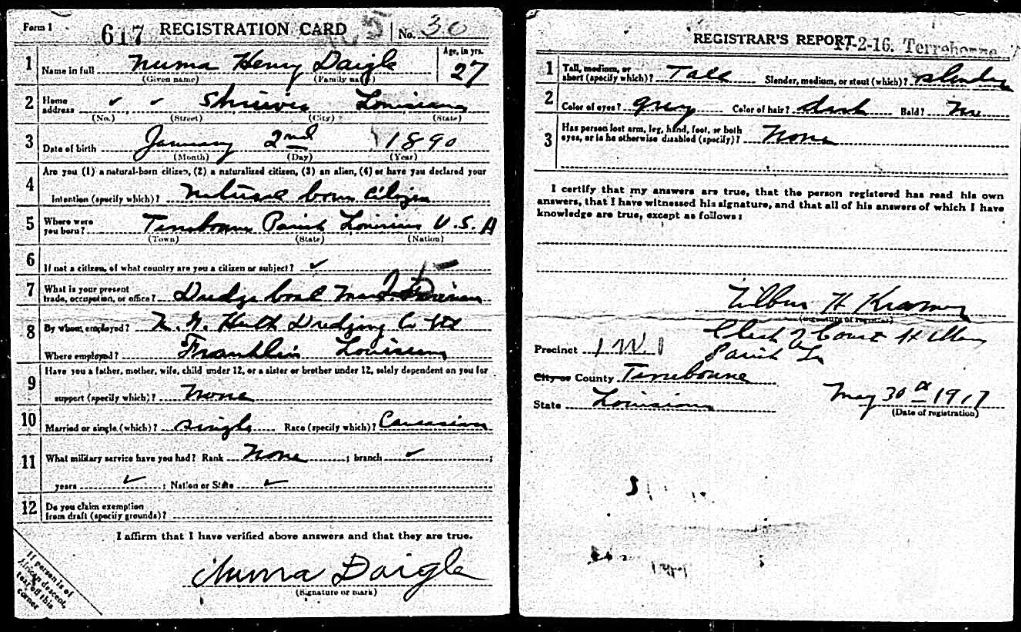 Form 1 617 REGISTRATION CARD No. 30
1 Name in full Numa Henry Daigle Age, in yrs. 27
(Given name) (Family name)
2 Home address Shriever Louisiana
(No.) (Street) (City) (State)
3 Date of birth January 2nd 1890
(Month) (Day) (Year)
4 Are you (1) a natural-born citizen, (2) a naturalized citizen, (3) an alien, (4) or have you declared your
intention (specify which)? Natural born citizen
5 Where were you born? Terrebonne Parish Louisiana U.S.A
(Town) (State) (Nation)
6 If not a citizen, of what country are you a citizen or subject?
7 What is your present trade, occupation, or office? Dredge boat
8 By whom employed? Dredging Co
Where employed? Franklin Louisiana
9 Have you a father, mother, wife, child under 12, or a sister or brother under 12, solely dependent on you for
support (specify which)? None
10 Married or single (which)? single Race (specify which)? Caucasian
11 What military service have you had? Rank None ; branch ;
years ; Nation or State
12 Do you claim exemption
from draft (specify grounds)?
I affirm that I have verified above answers and that they are true.
Numa Daigle
(Signature or mark)
If person is of
African descent,
tear off this
corner
REGISTRAR'S REPORT 17-2-16. Terrebonne
1 Tall, medium, or short (specify which)? Tall Slender, medium, or stout (which)? slender
2 Color of eyes? grey Color of hair? dark Bald? No
3 Has person lost arm, leg, hand, foot, or both
eyes, or is he otherwise disabled (specify)? None
I certify that my answers are true, that the person registered has read his own
answers, that I have witnessed his signature, and that all of his answers of which I have
knowledge are true, except as follows:
Wilbur H Kramer
(Signature of registrar)
Clerk of Court
Precinct 1 W 1 Parish La
City or County Terrebonne
State Louisiana May 30th 1917
(Date of registration)